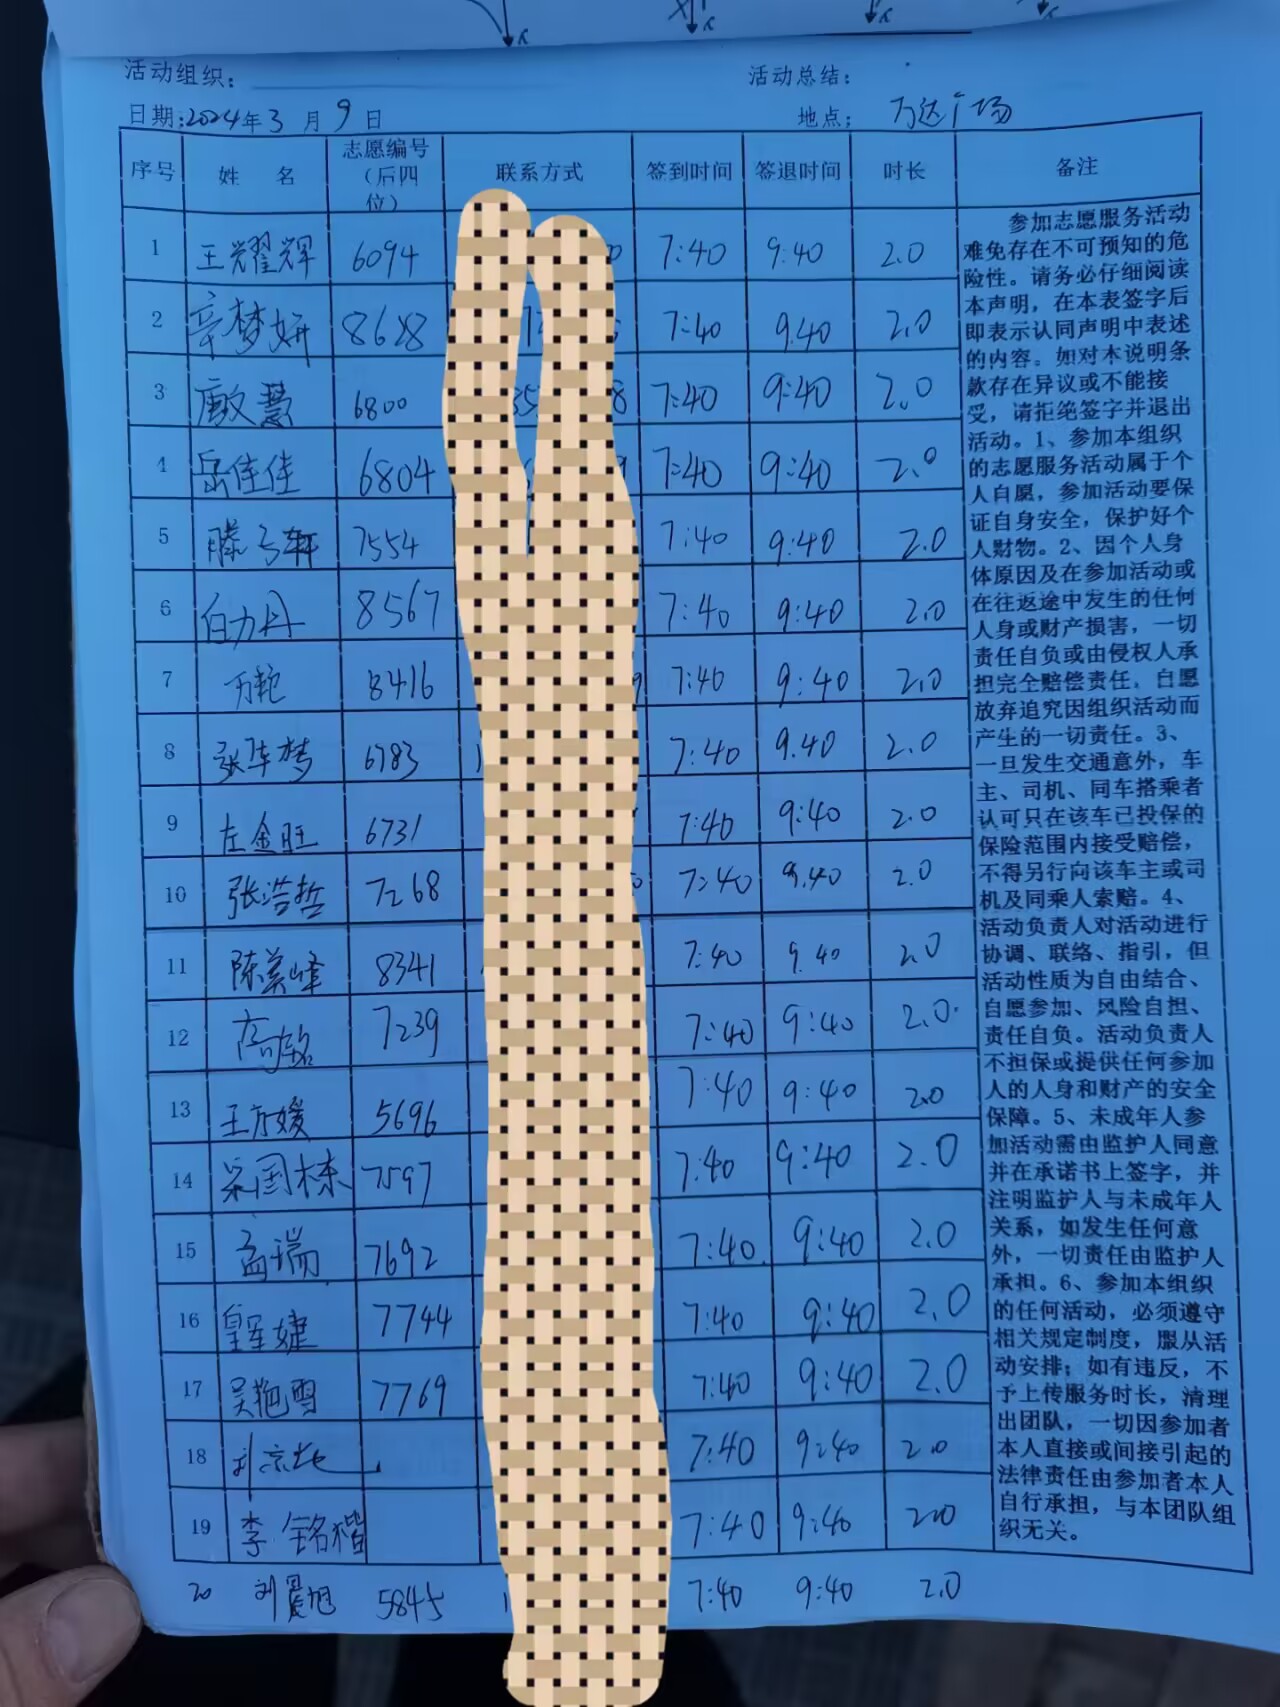 活动组织： 活动总结：
日期:2024年3月9日 地点； 万达广场
序号 姓 名 志愿编号（后四位） 联系方式 签到时间 签退时间 时长 备注
1 王耀辉 6094 7:40 9:40 2.0
2 辛梦妍 8628 7:40 9.40 2.0
3 6800 7:40 9:40 2.0
4 岳佳佳 6804 7:40 9:40 2.0
5 滕 轩 7554 7:40 9:40 2.0
6 白力丹 8567 7:40 9:40 2.0
7 万艳 8416 7:40 9:40 2.0
8 张 梦 6783 7:40 9.40 2.0
9 左金旺 6731 7:40 9:40 2.0
10 张浩哲 7268 7:40 9.40 2.0
11 陈美峰 8341 7:40 9.40 2.0
12 高铭 7239 7:40 9:40 2.0
13 王 媛 5696 7:40 9:40 2.0
14 国栋 7597 7:40 9:40 2.0
15 孟瑞 7692 7:40 9:40 2.0
16 婕 7744 7:40 9:40 2.0
17 吴艳雪 7769 7:40 9:40 2.0
18 刘京屹 7:40 9:40 2.0
19 李铭楷 7:40 9:40 2.0
20 刘晨旭 5845 7:40 9:40 2.0
参加志愿服务活动
难免存在不可预知的危
险性。请务必仔细阅读
本声明，在本表签字后
即表示认同声明中表述
的内容。如对本说明条
款存在异议或不能接
受，请拒绝签字并退出
活动。1、参加本组织
的志愿服务活动属于个
人自愿，参加活动要保
证自身安全，保护好个
人财物。2、因个人身
体原因及在参加活动或
在往返途中发生的任何
人身或财产损害，一切
责任自负或由侵权人承
担完全赔偿责任，自愿
放弃追究因组织活动而
产生的一切责任。3、
一旦发生交通意外，车
主、司机、同车搭乘者
认可只在该车已投保的
保险范围内接受赔偿，
不得另行向该车主或司
机及同乘人索赔。4、
活动负责人对活动进行
协调、联络、指引，但
活动性质为自由结合、
自愿参加、风险自担、
责任自负。活动负责人
不担保或提供任何参加
人的人身和财产的安全
保障。5、未成年人参
加活动需由监护人同意
并在承诺书上签字，并
注明监护人与未成年人
关系，如发生任何意
外，一切责任由监护人
承担。6、参加本组织
的任何活动，必须遵守
相关规定制度，服从活
动安排；如有违反，不
予上传服务时长，清理
出团队，一切因参加者
本人直接或间接引起的
法律责任由参加者本人
自行承担，与本团队组
织无关。